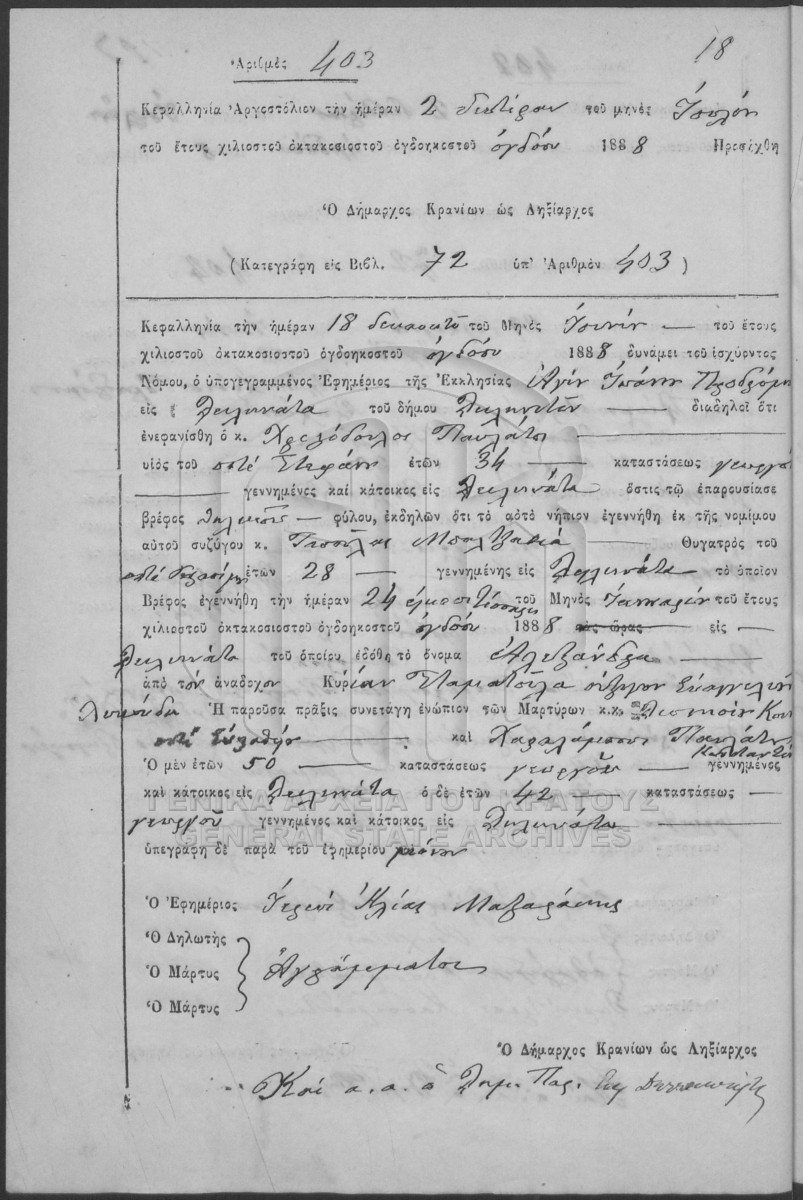 18
Ἀριθμὸς 403
Κεφαλληνία Ἀργοστόλιον τὴν ἡμέραν 2 δευτέραν τοῦ μηνὸς Ἰουλίου
τοῦ ἔτους χιλιοστοῦ ὀκτακοσιοστοῦ ὀγδοηκοστοῦ ὀγδόου 1888 Προσήχθη
Ὁ Δήμαρχος Κρανίων ὡς Ληξίαρχος
(Κατεγράφη εἰς Βιβλ. 72 ὑπ' Ἀριθμὸν 403)
Κεφαλληνία τὴν ἡμέραν 18 δεκαοκτὼ τοῦ Μηνὸς Ἰουνίου τοῦ ἔτους
χιλιοστοῦ ὀκτακοσιοστοῦ ὀγδοηκοστοῦ ὀγδόου 1888 δυνάμει τοῦ ἰσχύοντος
Νόμου, ὁ ὑπογεγραμμένος Ἐφημέριος τῆς Ἐκκλησίας Ἁγίου Ἰωάννου Προδρόμου
εἰς Διλινάτα τοῦ δήμου Διλινάτων διαδηλοῖ ὅτι
ἐνεφανίσθη ὁ κ. Χριστόδουλος Παυλάτος
υἱὸς τοῦ ποτὲ Στεφάνου ἐτῶν 34 καταστάσεως γεωργοῦ
γεννημένος καὶ κάτοικος εἰς Διλινάτα ὅστις τῷ ἐπαρουσίασε
βρέφος θηλυκοῦ φύλου, ἐκδηλῶν ὅτι τὸ αὐτὸ νήπιον ἐγεννήθη ἐκ τῆς νομίμου
αὐτοῦ συζύγου κ. Θυγατρὸς τοῦ
ποτὲ Γερασίμου ἐτῶν 28 γεννημένης εἰς Διλινάτα τὸ ὁποῖον
Βρέφος ἐγεννήθη τὴν ἡμέραν 24 εἴκοσι τέσσαρες τοῦ Μηνὸς Ἰανουαρίου τοῦ ἔτους
χιλιοστοῦ ὀκτακοσιοστοῦ ὀγδοηκοστοῦ ὀγδόου 1888 τὰς ὥρας εἰς
Διλινάτα τοῦ ὁποίου ἐδόθη τὸ ὄνομα Ἀλεξάνδρα
ἀπὸ τὸν ἀνάδοχον Κυρίαν Σταματούλα σύζυγον Εὐαγγελινοῦ
Ἡ παροῦσα πρᾶξις συνετάγη ἐνώπιον τῶν Μαρτύρων κ.κ.
ποτὲ καὶ Χαράλαμπος Παυλάτος
Κωνσταντίνου
Ὁ μὲν ἐτῶν 50 καταστάσεως γεωργοῦ γεννημένος
καὶ κάτοικος εἰς Διλινάτα ὁ δὲ ἐτῶν 42 καταστάσεως
γεωργοῦ γεννημένος καὶ κάτοικος εἰς Διλινάτα
ὑπεγράφη δὲ παρὰ τοῦ ἐφημερίου μόνου
ΓΕΝΙΚΑ ΑΡΧΕΙΑ ΤΟΥ ΚΡΑΤΟΥΣ
GENERAL STATE ARCHIVES
Ὁ Ἐφημέριος Ἱερεὺς Ἠλίας
Ὁ Δηλωτὴς
Ὁ Μάρτυς Ἀγράμματοι
Ὁ Μάρτυς
Ὁ Δήμαρχος Κρανίων ὡς Ληξίαρχος
Καὶ α. α. ὁ Δημ. Παρ.